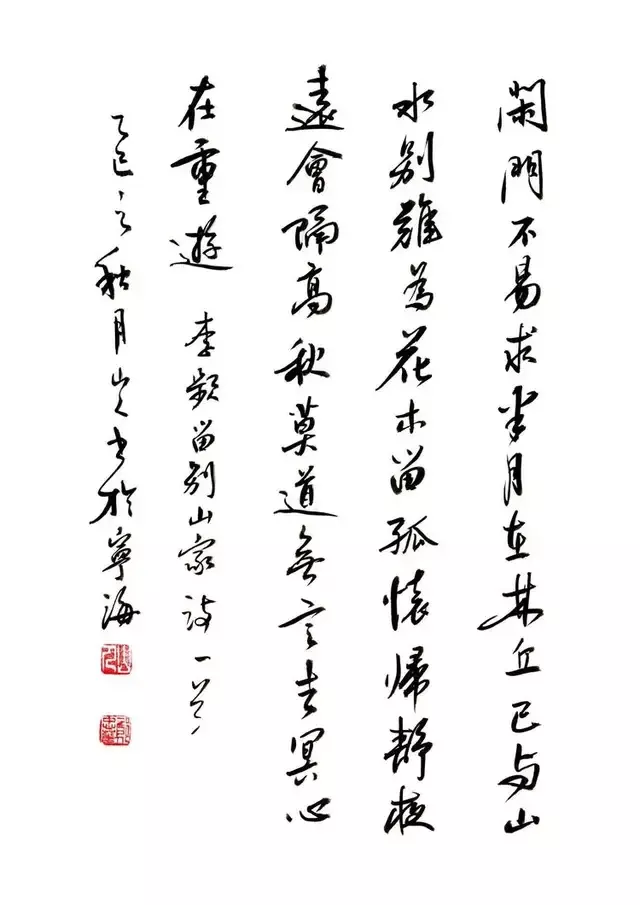 閑門不易求半月在林丘已与山
水别難為花木留孤懷帰靜夜
遠會隔高秋莫道無言去冥心
在重遊 李頻留别山家詩一首
乙巳之秋月山人书於寧海